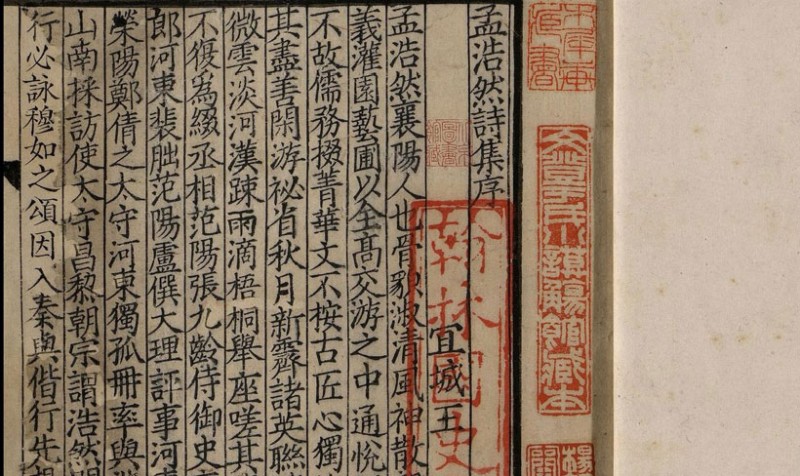 文登于氏小謨觴館藏本
孟浩然詩集序
翰林國史
宜城王
孟浩然襄陽人也骨貌淑清風神散
義灌園藝圃以全高交游之中通悅
不故儒務掇菁華文不桉古匠心獨
其盡善閑游祕省秋月新霽諸英聯
微雲淡河漢疎雨滴梧桐舉座嗟其
不復爲綴丞相范陽張九齡侍御史
郎河東裴朏范陽盧僎大理評事河
榮陽鄭倩之太守河東獨孤冊率與
山南採訪使太守昌黎朝宗謂浩然
行必詠穆如之頌因入秦與偕行先